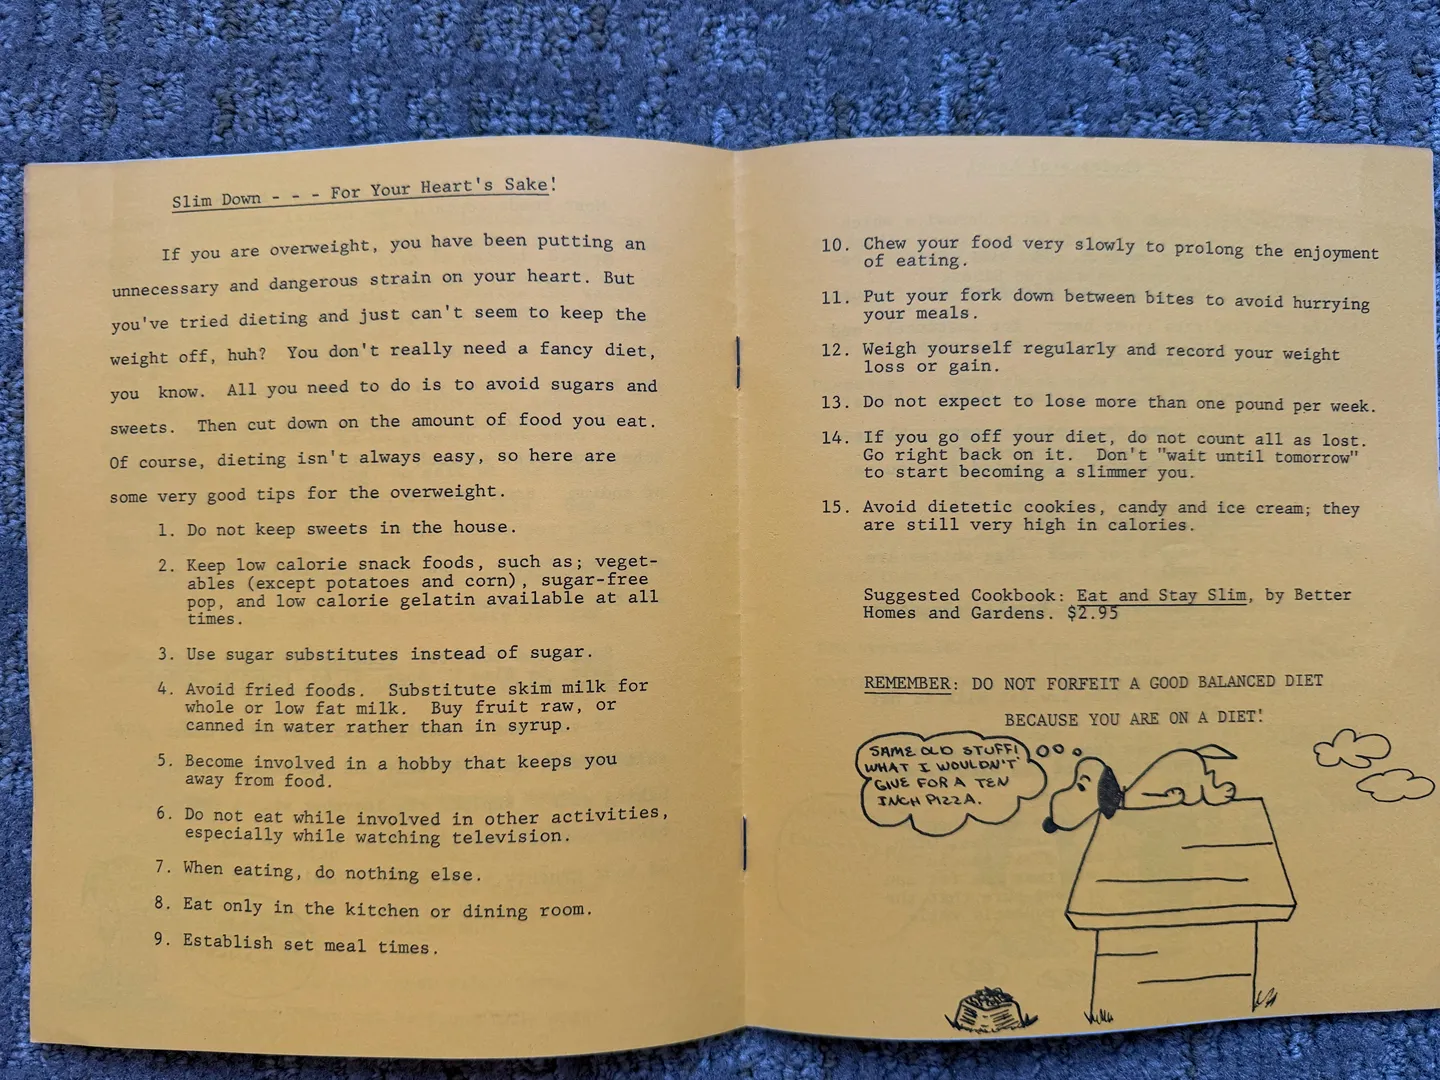 Slim Down - - - For Your Heart's Sake!
If you are overweight, you have been putting an
unnecessary and dangerous strain on your heart. But
you've tried dieting and just can't seem to keep the
weight off, huh? You don't really need a fancy diet,
you know. All you need to do is to avoid sugars and
sweets. Then cut down on the amount of food you eat.
Of course, dieting isn't always easy, so here are
some very good tips for the overweight.
1. Do not keep sweets in the house.
2. Keep low calorie snack foods, such as; veget-
ables (except potatoes and corn), sugar-free
pop, and low calorie gelatin available at all
times.
3. Use sugar substitutes instead of sugar.
4. Avoid fried foods. Substitute skim milk for
whole or low fat milk. Buy fruit raw, or
canned in water rather than in syrup.
5. Become involved in a hobby that keeps you
away from food.
6. Do not eat while involved in other activities,
especially while watching television.
7. When eating, do nothing else.
8. Eat only in the kitchen or dining room.
9. Establish set meal times.
10. Chew your food very slowly to prolong the enjoyment
of eating.
11. Put your fork down between bites to avoid hurrying
your meals.
12. Weigh yourself regularly and record your weight
loss or gain.
13. Do not expect to lose more than one pound per week.
14. If you go off your diet, do not count all as lost.
Go right back on it. Don't "wait until tomorrow"
to start becoming a slimmer you.
15. Avoid dietetic cookies, candy and ice cream; they
are still very high in calories.
Suggested Cookbook: Eat and Stay Slim, by Better
Homes and Gardens. $2.95
REMEMBER: DO NOT FORFEIT A GOOD BALANCED DIET
BECAUSE YOU ARE ON A DIET!
SAME OLD STUFF!
WHAT I WOULDN'T
GIVE FOR A TEN
INCH PIZZA.